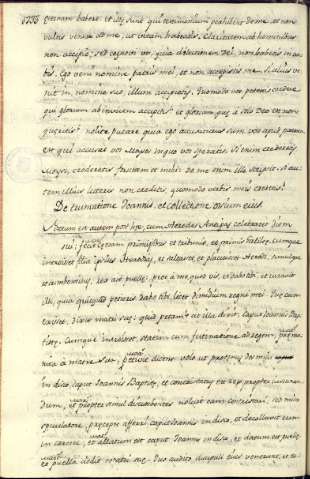 1736 æternam habere. et illæ sunt quæ testimonium perhibent de me, et non
vultis venire ad me, ut vitam habeatis. Claritatem ab hominibus
non accipio, sed cognovi vos, quia dilectionem Dei non habetis in vo
bis. Ego veni in nomine patris mei, et non accepistis me. Si alius ve
nerit in nomine suo, illum accipietis. Quomodo vos potestis credere
qui gloriam ab invicem accipitis et gloriam quæ a solo Deo est non
quæritis? nolite putare quia ego accusaturus sum vos apud patrem
est qui accusat vos Moyses in quo vos speratis. Si enim crederetis
Moysi, crederetis forsitan et mihi: de me enim ille scripsit. Si au
tem illius litteris non creditis, quomodo verbis meis credetis?
De Joannis, et collectione ossium eius
autem post hæc, cum Herodes Antipas celebraret diem
sui, fecit cœnam principibus et tribunis, et primis Galileæ, cumque
introisset filia ipsius Herodiadis, et saltasset, et placuisset Herodi, simulque
recumbentibus, rex ait puellæ: pete a me quod vis, et dabo tibi, et iuravit
illi, quia quicquid petieris dabo tibi, licet dimidium regni mei. Quæ cum
exisset, dixit matri suæ: quid petam? at illa dixit: caput Joannis Bap
tistæ. Cumque introisset statim cum festinatione ad regem,
a matre sua petivit dicens: volo ut protinus des mihi
in disco caput Joannis Baptistæ, et contristatus est rex propter iusiuran
dum, et propter simul discumbentes noluit eam contristari, sed misso
spiculatore, præcepit afferri caput Joannis in disco, et decollavit eum
in carcere, et allatum est caput Joannis in disco, et datum est puellæ
et puella dedit matri suæ. Quo audito, discipuli eius venerunt, et tu